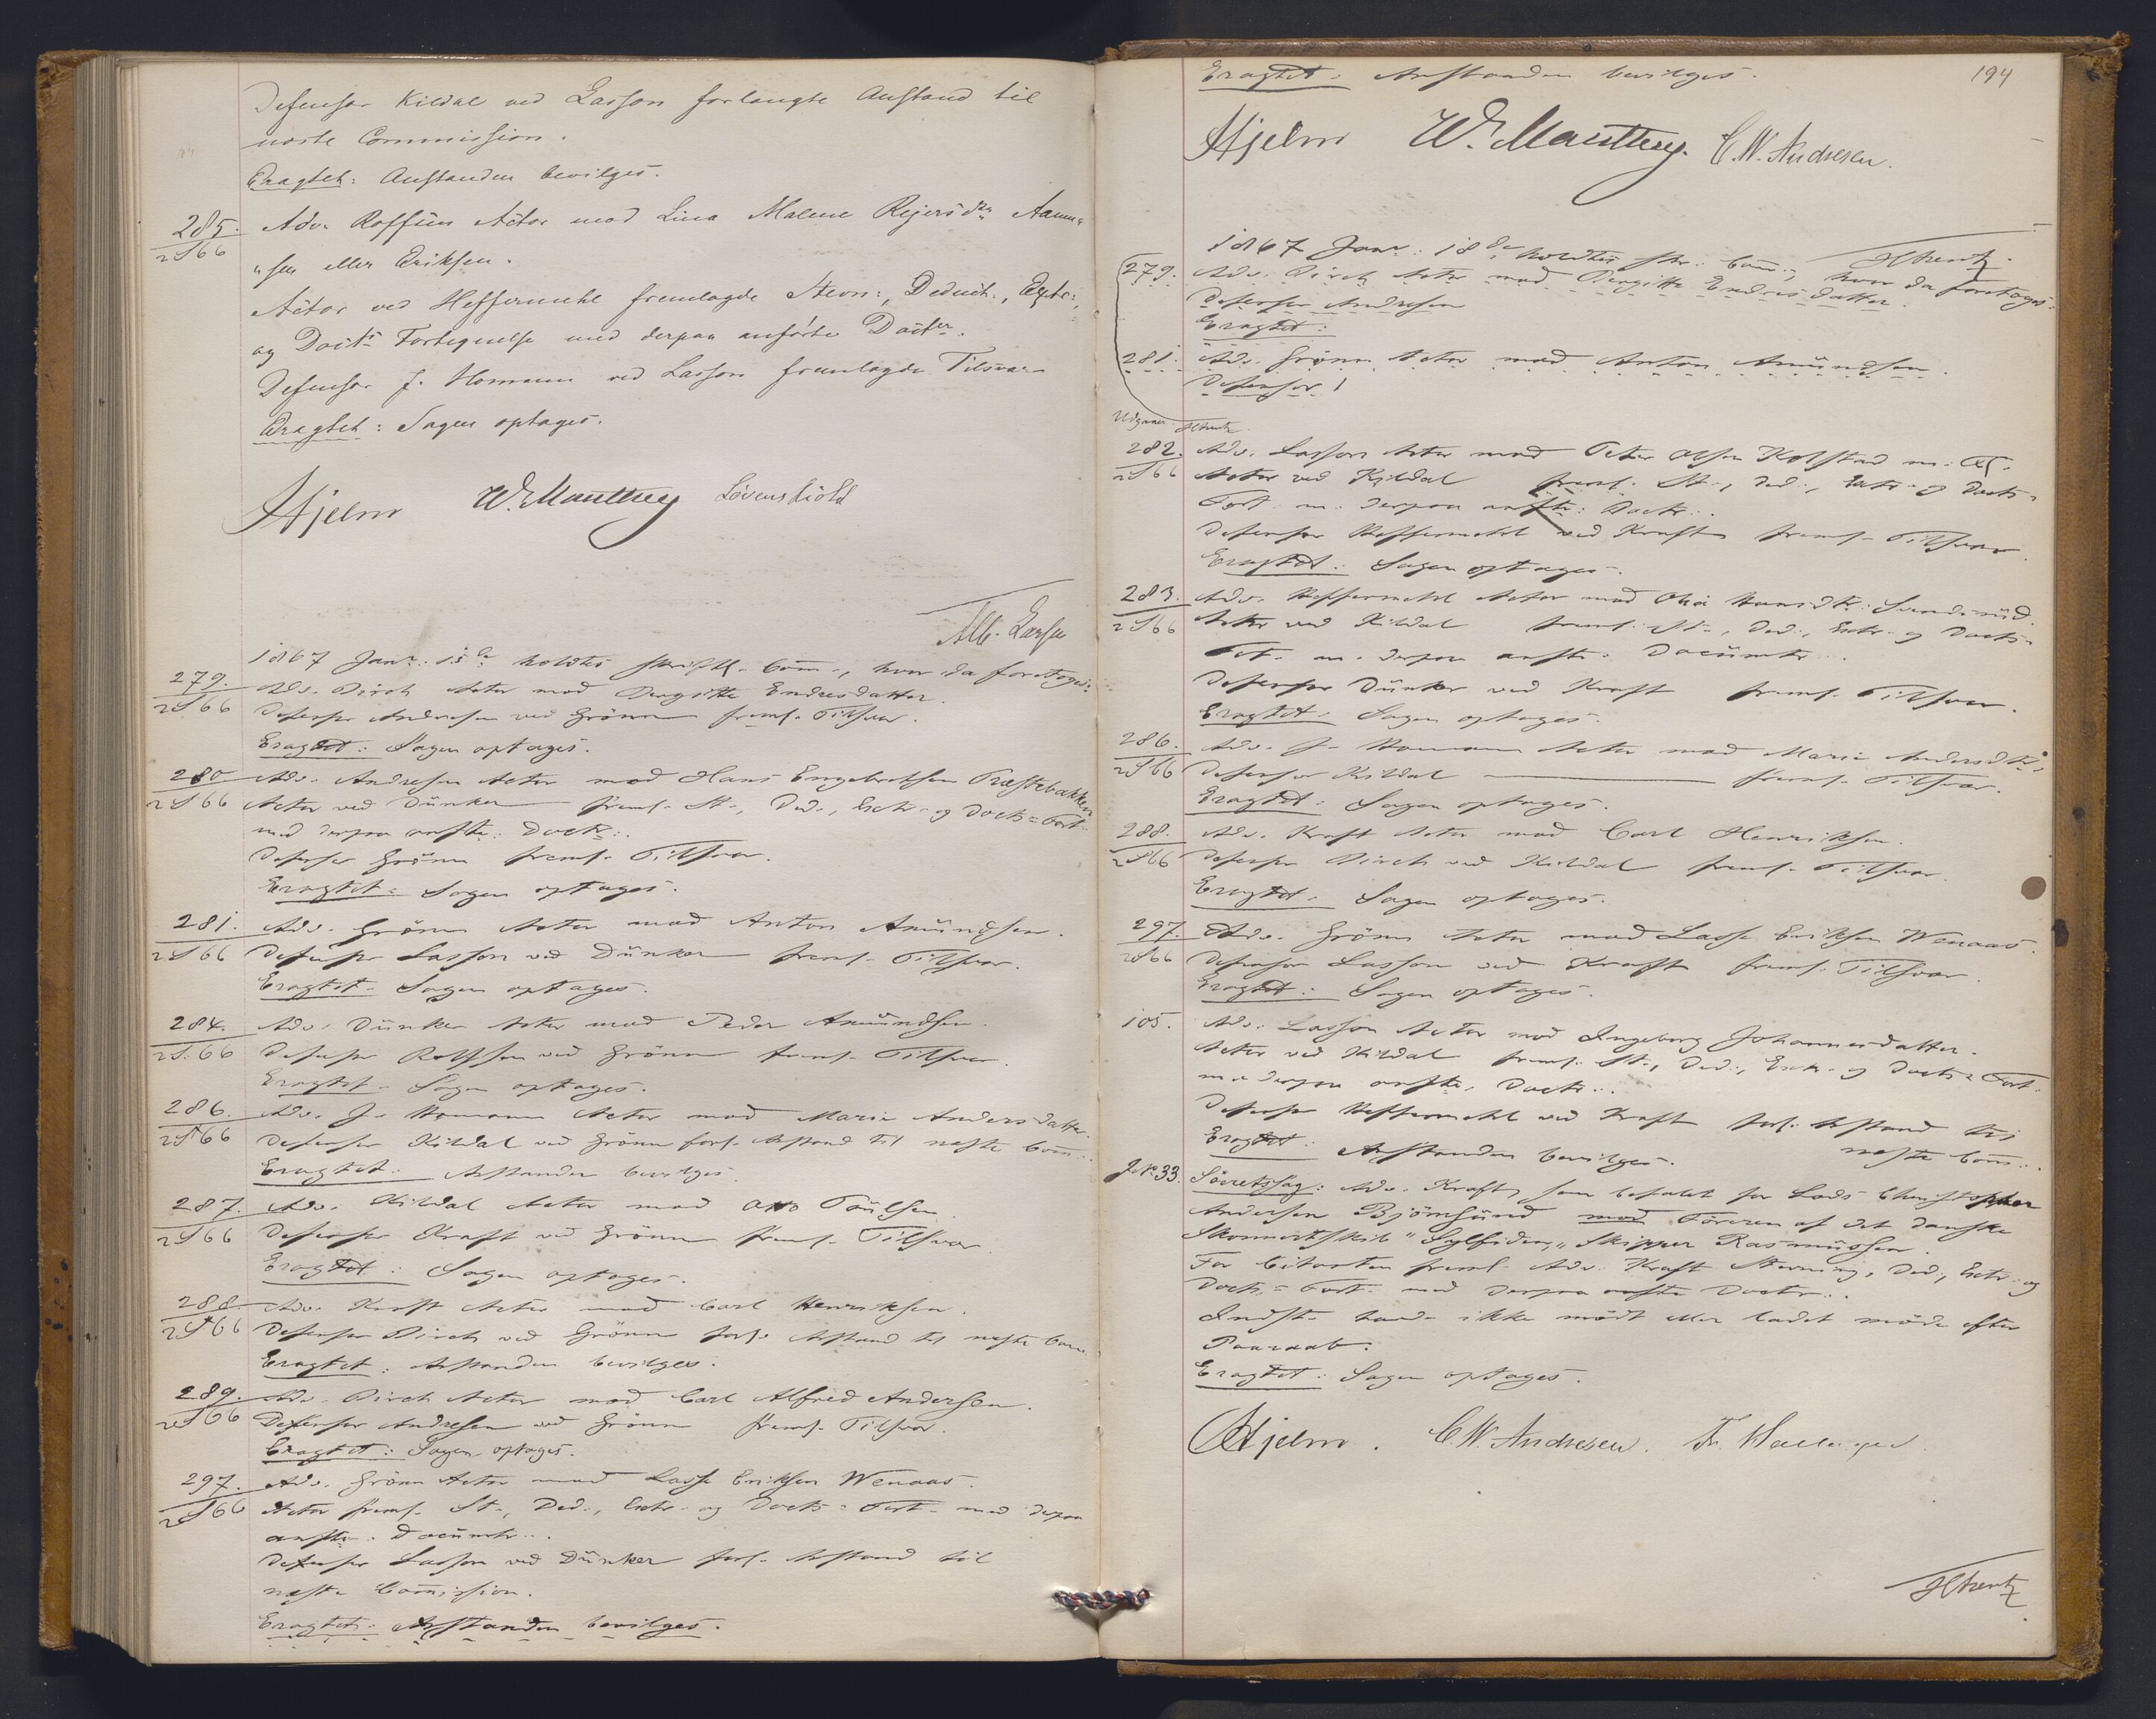 Defensor Kildal ved Lasson forlangte Anstand til
næste Commission.
Eragtet: Anstanden bevilges.
285.
2S66
Adv. Rolfsen Actor mod Lina Malene Rejersdtr Aamun-
"sen eller Eriksen.
Actor ved Heffermehl fremlagde Stevn:, Deduct:, Extr:,
og Docts Fortegnelse med derpaa anførte Docter.
Defensor J. Homann ved Lasson fremlagde Tilsvar
Eragtet: Sagen optages.
Hjelm W. Manthey Løvenskiold
Alb. Larsen
1867 Janr: 15de holdtes skriftl. Com̄:, hvor da foretoges:
279.
2S66
Adv. Birch Actor mod Bergitte Endresdatter.
Defensor Andresen ved Grönn freml. Tilsvar.
Eragtet: Sagen optages.
280
2S66
Adv. Andresen Actor mod Hans Engebretsen Præstebakken
Actor ved Dunker freml. St., Ded., Extr. og Docts= Fort.
med derpaa anfte: Doctr:.
Defensor Grönn freml. Tilsvar.
Eragtet: Sagen optages.
281.
2S66
Adv. Grönn Actor mod Anton Amundsen.
Defensor Lasson ved Dunker freml. Tilsvar.
Eragtet: Sagen optages.
284.
2S.66
Adv. Dunker Actor mod Peder Amundsen.
Defensor Rolfsen ved Grönn freml. Tilsvar.
Eragtet: Sagen optages.
286.
2S66
Adv. J. Homann Actor mod Marie Andersdatter.
Defensor Kildal ved Grönn forl. Anstand til næste Com̄:.
Eragtet: Anstanden bevilges.
287.
2S66
Adv. Kildal Actor mod Otto Poulsen
Defensor Kraft ved Grönn freml. Tilsvar.
Eragtet: Sagen optages.
288
2S66
Adv. Kraft Actor mod Carl Henriksen.
Defensor Birch ved Grönn forl. Anstand til næste Com̄
Eragtet: Anstanden bevilges.
289.
2S66
Adv. Birch Actor mod Carl Alfred Andersen.
Defensor Andresen ved Grönn freml. Tilsvar.
Eragtet: Sagen optages.
297.
2S66
Adv. Grönn Actor mod Lasse Eriksen Wenaas.
Actor freml. St., Ded., Extr. og Docts= Fort. med derpaa
anfte. Documtr:.
Defensor Lasson ved Dunker forl. Anstand til
næste Com̄ission.
Eragtet: Anstanden bevilges.
194
Eragtet: Anstanden bevilges.
Hjelm W. Manthey. C.W. Andresen.
HArentz.
1867 Janr: 18de, holdtes skr. Com̄:, hvor da foretoges:
279.
Adv. Birch Actor mod Bergitte Endresdatter.
Defensor Andresen
Eragtet:
281.
Adv. Grönn Actor mod Anton Amundsen.
Defensor
Udgaaer HArentz.
282.
2S66
Adv. Lasson Actor mod Peter Olsen Kolstad m. Fl.
Actor ved Kildal freml. St., Ded., Extr. og Docts=
Fort. m. derpaa anfte: Doctr:.
Defensor Heffermehl ved Kraft freml. Tilsvar.
Eragtet: Sagen optages.
283.
2S66
Adv. Heffermehl Actor mod Olea Hansdtr: Svendsrud.
Actor ved Kildal freml. St., Ded., Extr. og Docts=
Fort. m. derpaa anfte. Documtr:.
Defensor Dunker ved Kraft freml. Tilsvar.
Eragtet: Sagen optages.
286.
2S66
Adv. J. Homann Actor mod Marie Andersdtr.
Defensor Kildal freml. Tilsvar.
Eragtet: Sagen optages.
288.
2S66
Adv. Kraft Actor mod Carl Henriksen.
Defensor Birch ved Kildal freml. Tilsvar.
Eragtet: Sagen optages.
297.
2S66
Adv. Grönn Actor mod Lasse Eriksen Wenaas.
Defensor Lasson ved Kraft freml. Tilsvar.
Eragtet: Sagen optages.
105.
Adv. Lasson Actor mod Ingeborg Johannesdatter.
Actor ved Kildal freml. St., Ded., Extr. og Docts= Fort.
m. derpaa anfte. Doctr:.
Defensor Heffermehl ved Kraft forl. Anstand til
næste Com̄:.
Eragtet: Anstanden bevilges.
J.No 33.
Söretssag: Adv. Kraft, som befalet for Lods Christopher
Andersen Björnsund mod Föreren af det danske
Skonnertskib "Sylfiden," Skipper Rasmussen.
For Citanten freml. Adv. Kraft Stevning, Ded., Extr. og
Docts= Fort. med derpaa anfte Doctr:.
Indst. havde ikke mödt eller ladet möde efter
Paaraab.
Eragtet: Sagen optages.
Hjelm. C.W. Andresen.
HArentz.